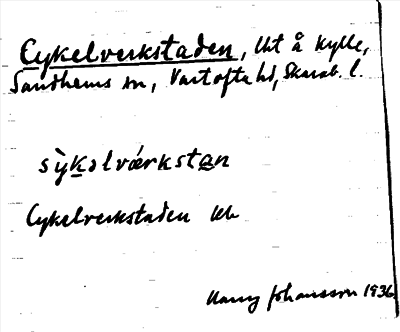 Cykelverkstaden, lht å Kylle,
Sandhems sn, Vartofta hd, Skarab. l.
sỳkəlvǽrkstan
Cykelverkstaden
Harry Johansson 1936